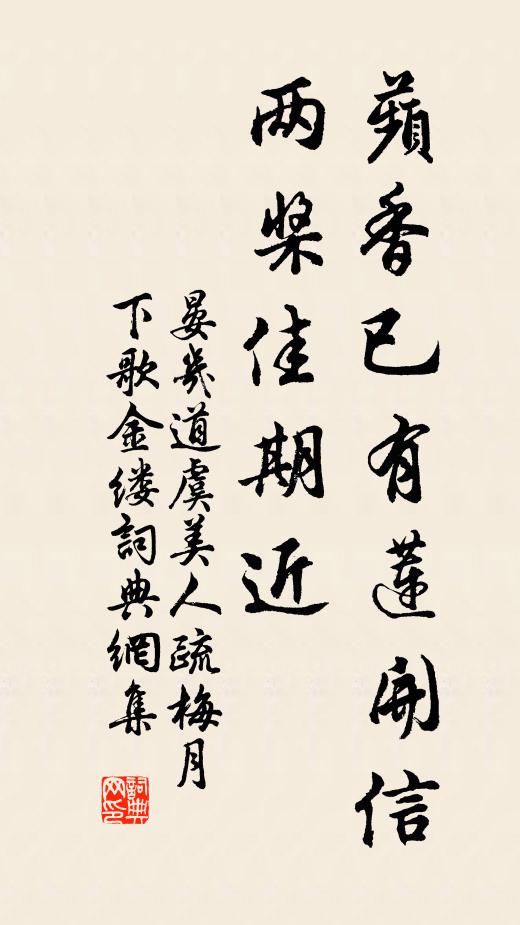 蘋香已有蓮開信
两槳佳期近
晏幾道虞美人疏梅月
下歌金缕詞典網集
詞典
网印